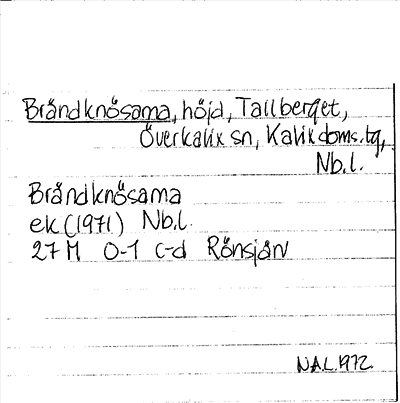 Brändknösarna, höjd, Tallberget,
Överkalix sn, Kalix doms.tg,
Nb.l.
Brändknösarna
ek (1971) Nb.l.
27 M 0-1 c-d Rönsjärv
N.A.L. 1972.